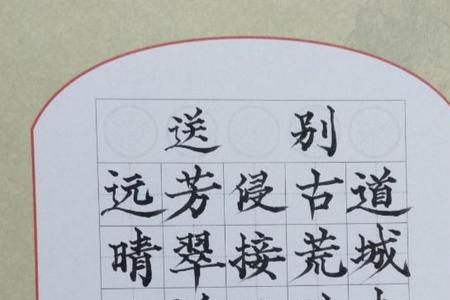 送别
远芳侵古道
晴翠接荒城